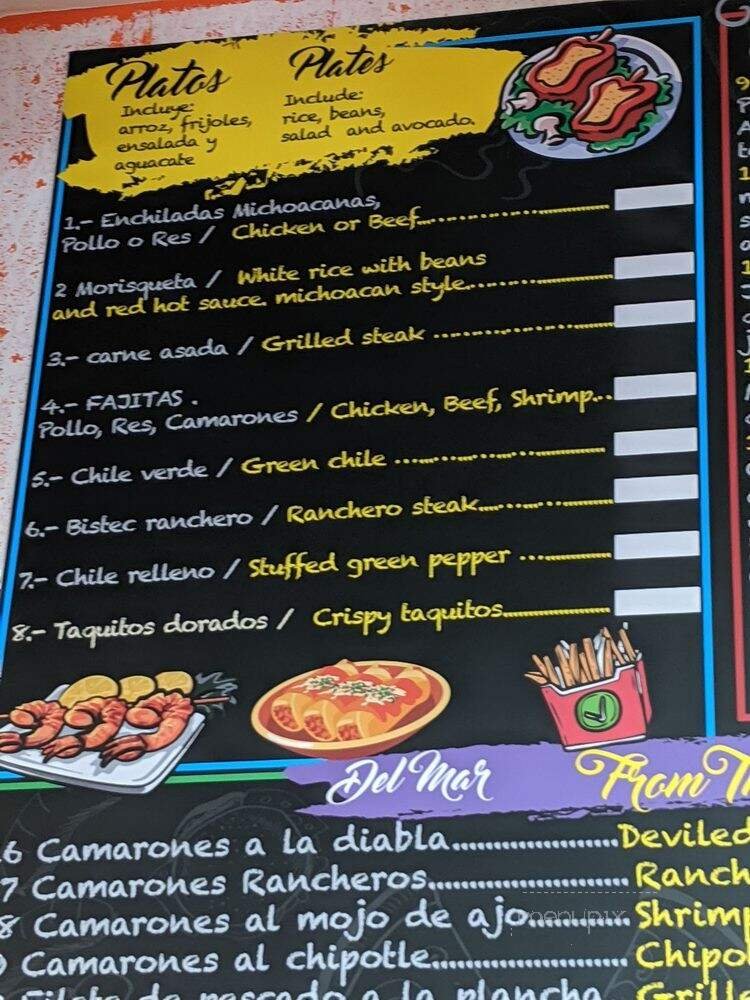 Platos
Incluye:
arroz, frijoles,
ensalada y
aguacate
Plates
Include:
rice, beans,
salad and avocado.
1.- Enchiladas Michoacanas,
Pollo o Res / Chicken or Beef
2 Morisqueta / White rice with beans
and red hot sauce. michoacan style
3.- carne asada / Grilled steak
4.- FAJITAS .
Pollo, Res, Camarones / Chicken, Beef, Shrimp
5.- Chile verde / Green chile
6.- Bistec ranchero / Ranchero steak
7.- Chile relleno / Stuffed green pepper
8.- Taquitos dorados / Crispy taquitos
Del Mar From
6 Camarones a la diabla Deviled
7 Camarones Rancheros Ranch
8 Camarones al mojo de ajo Shrimp
Camarones al chipotle Chipo
Filete de pescado a la plancha Grill